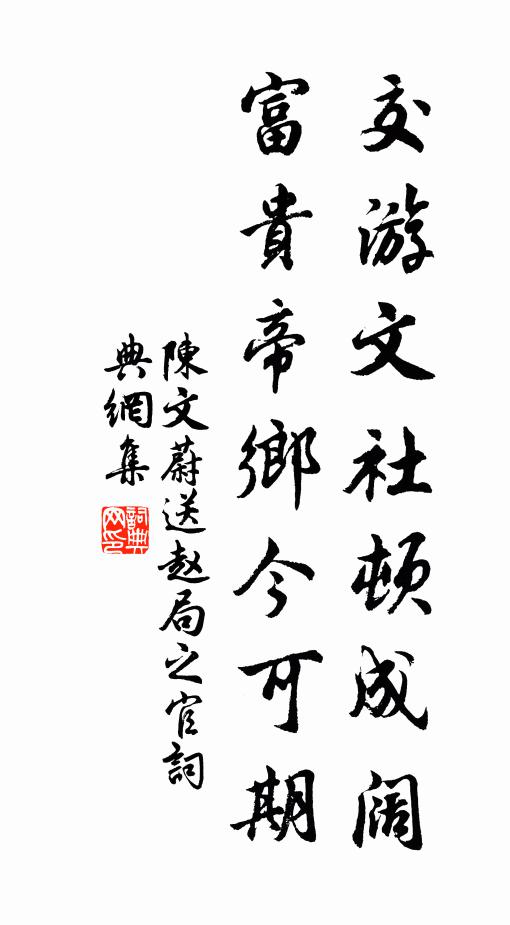 交游文社頓成阔
富貴帝鄉今可期
陳文蔚送赵局之官詞
典網集
詞典网印